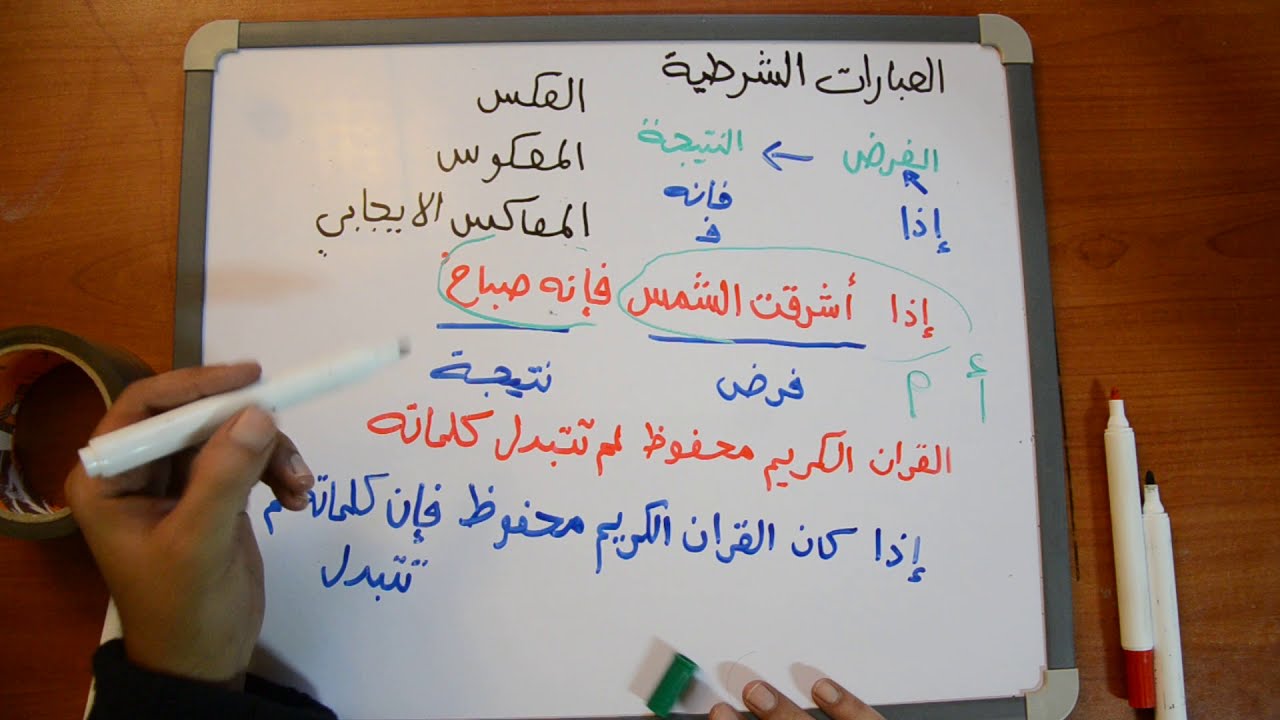 العبارات الشرطية
الفرض ← النتيجة
إذا فانه
ف
العكس
المعكوس
المعاكس الايجابي
إذا أشرقت الشمس فإنه صباح
فرض نتيجة
أ م
القران الكريم محفوظ لم تتبدل كلماته
إذا كان القران الكريم محفوظ فإن كلماته لم
تتبدل